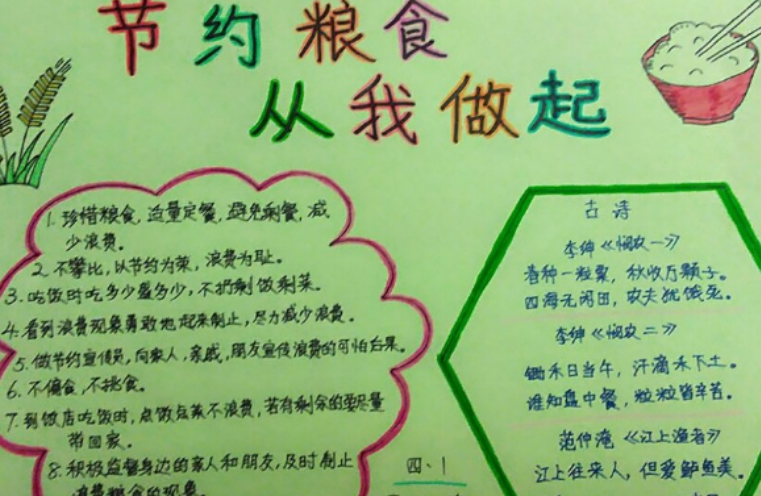 节约粮食
从我做起
1. 珍惜粮食,适量定餐,避免剩餐,减
少浪费。
2. 不攀比,以节约为荣,浪费为耻。
3. 吃饭时吃多少盛多少,不扔剩饭剩菜。
4. 看到浪费现象勇敢地起来制止,尽力减少浪费。
5. 做节约宣传员,向家人,亲戚,朋友宣传浪费的可怕后果。
6. 不偏食,不挑食。
7. 到饭店吃饭时,点饭点菜不浪费,若有剩余的要尽量
带回家。
8. 积极监督身边的亲人和朋友,及时制止
浪费粮食的现象。
四、1
古诗
李绅《悯农一》
春种一粒粟,秋收万颗子。
四海无闲田,农夫犹饿死。
李绅《悯农二》
锄禾日当午,汗滴禾下土。
谁知盘中餐,粒粒皆辛苦。
范仲淹《江上渔者》
江上往来人,但爱鲈鱼美。